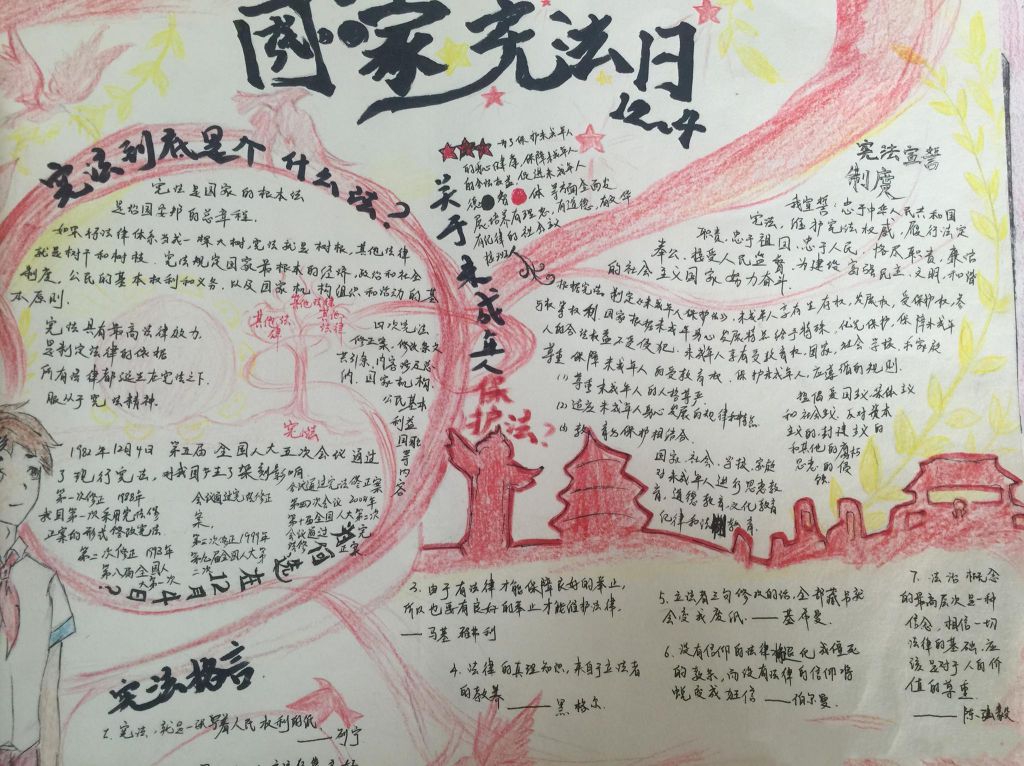 国家宪法日
12.4
宪法到底是个什么法?
宪法是国家的根本法
是治国安邦的总章程.
如果将法律体系当成一棵大树,宪法就是树根,其他法律
就是树干和树枝。宪法规定国家最根本的经济,政治和社会
制度,公民的基本权利和义务,以及国家机构组织和活动的基
本原则.
宪法具有最高法律效力.
是制定法律的依据
所有法律都诞生在宪法之下.
服从于宪法精神.
其他法律
其他法律
其他法律
宪法
四次宪法
修正案,修改条文
共31条,内容涉及
国家机构.
公民基本
利益
国歌
等内容
1982年12月4日 第五届全国人大五次会议通过
了现行宪法,对我国产生了深刻影响
第一次修正 1988年
我国第一次采用宪法修
正案的形式修改宪法
第二次修正 1993年
第八届全国人
大第一次
会议通过宪法修正
案.
第三次修正 1999年
第九届全国人大第
二次
会议通过宪法修正案
第四次会议 2004年
第十届全国人大第二次
会议通过宪
法修正案
为何选在12月4日?
关于未成年人保护法?
为了保护未成年人
的身心健康,保障未成年人
的合法权益,促进未成年人
德 智 体 等方面全面发
展培养有理想,有道德,有文化
有纪律的社会主义
接班人
宪法宣誓
制度
我宣誓:忠于中华人民共和国
宪法,维护宪法权威,履行法定
职责,忠于祖国,忠于人民,恪尽职责,廉洁
奉公,接受人民监督,为建设富强民主,文明,和谐
的社会主义国家努力奋斗.
根据宪法,制定《未成年人保护法》,未成年人享有生存权,发展权,受保护权,参
与权等权利,国家根据未成年身心发展特点给予特殊,优先保护,保障未成年
人的合法权益不受侵犯.未成年人享有受教育权.国家,社会,学校,和家庭
尊重 保障未成年人的受教育权.保护未成年人,应遵循的规则.
(1)尊重未成年人的人格尊严
(2)适应未成年人身心发展的规律和特点
(3)教育与保护相结合.
国家,社会,学校,家庭
对未成年人进行思想教
育,道德教育,文化教育
纪律和法制教育.
提倡爱国主义,集体主义
和社会主义,反对资本
主义的,封建主义的
和其他的腐朽
思想的侵
蚀.
宪法格言
2.宪法,就是一张写着人民权利的纸
——列宁
3.由于有法律才能保障良好的举止,
所以也要有良好的举止才能维护法律.
——马基雅弗利
4.法律的真理知识,来自于立法者
的教养
——黑格尔
5.立法者三句修改的话,全部藏书就
会变成废纸.——基希曼.
6.没有信仰的法律将退化成僵死
的教条,而没有法律的信仰将
蜕变成狂信——伯尔曼.
7.法治概念
的最高层次是一种
信念,相信一切
法律的基础,应
该是对于人的价
值的尊重
——陈弘毅